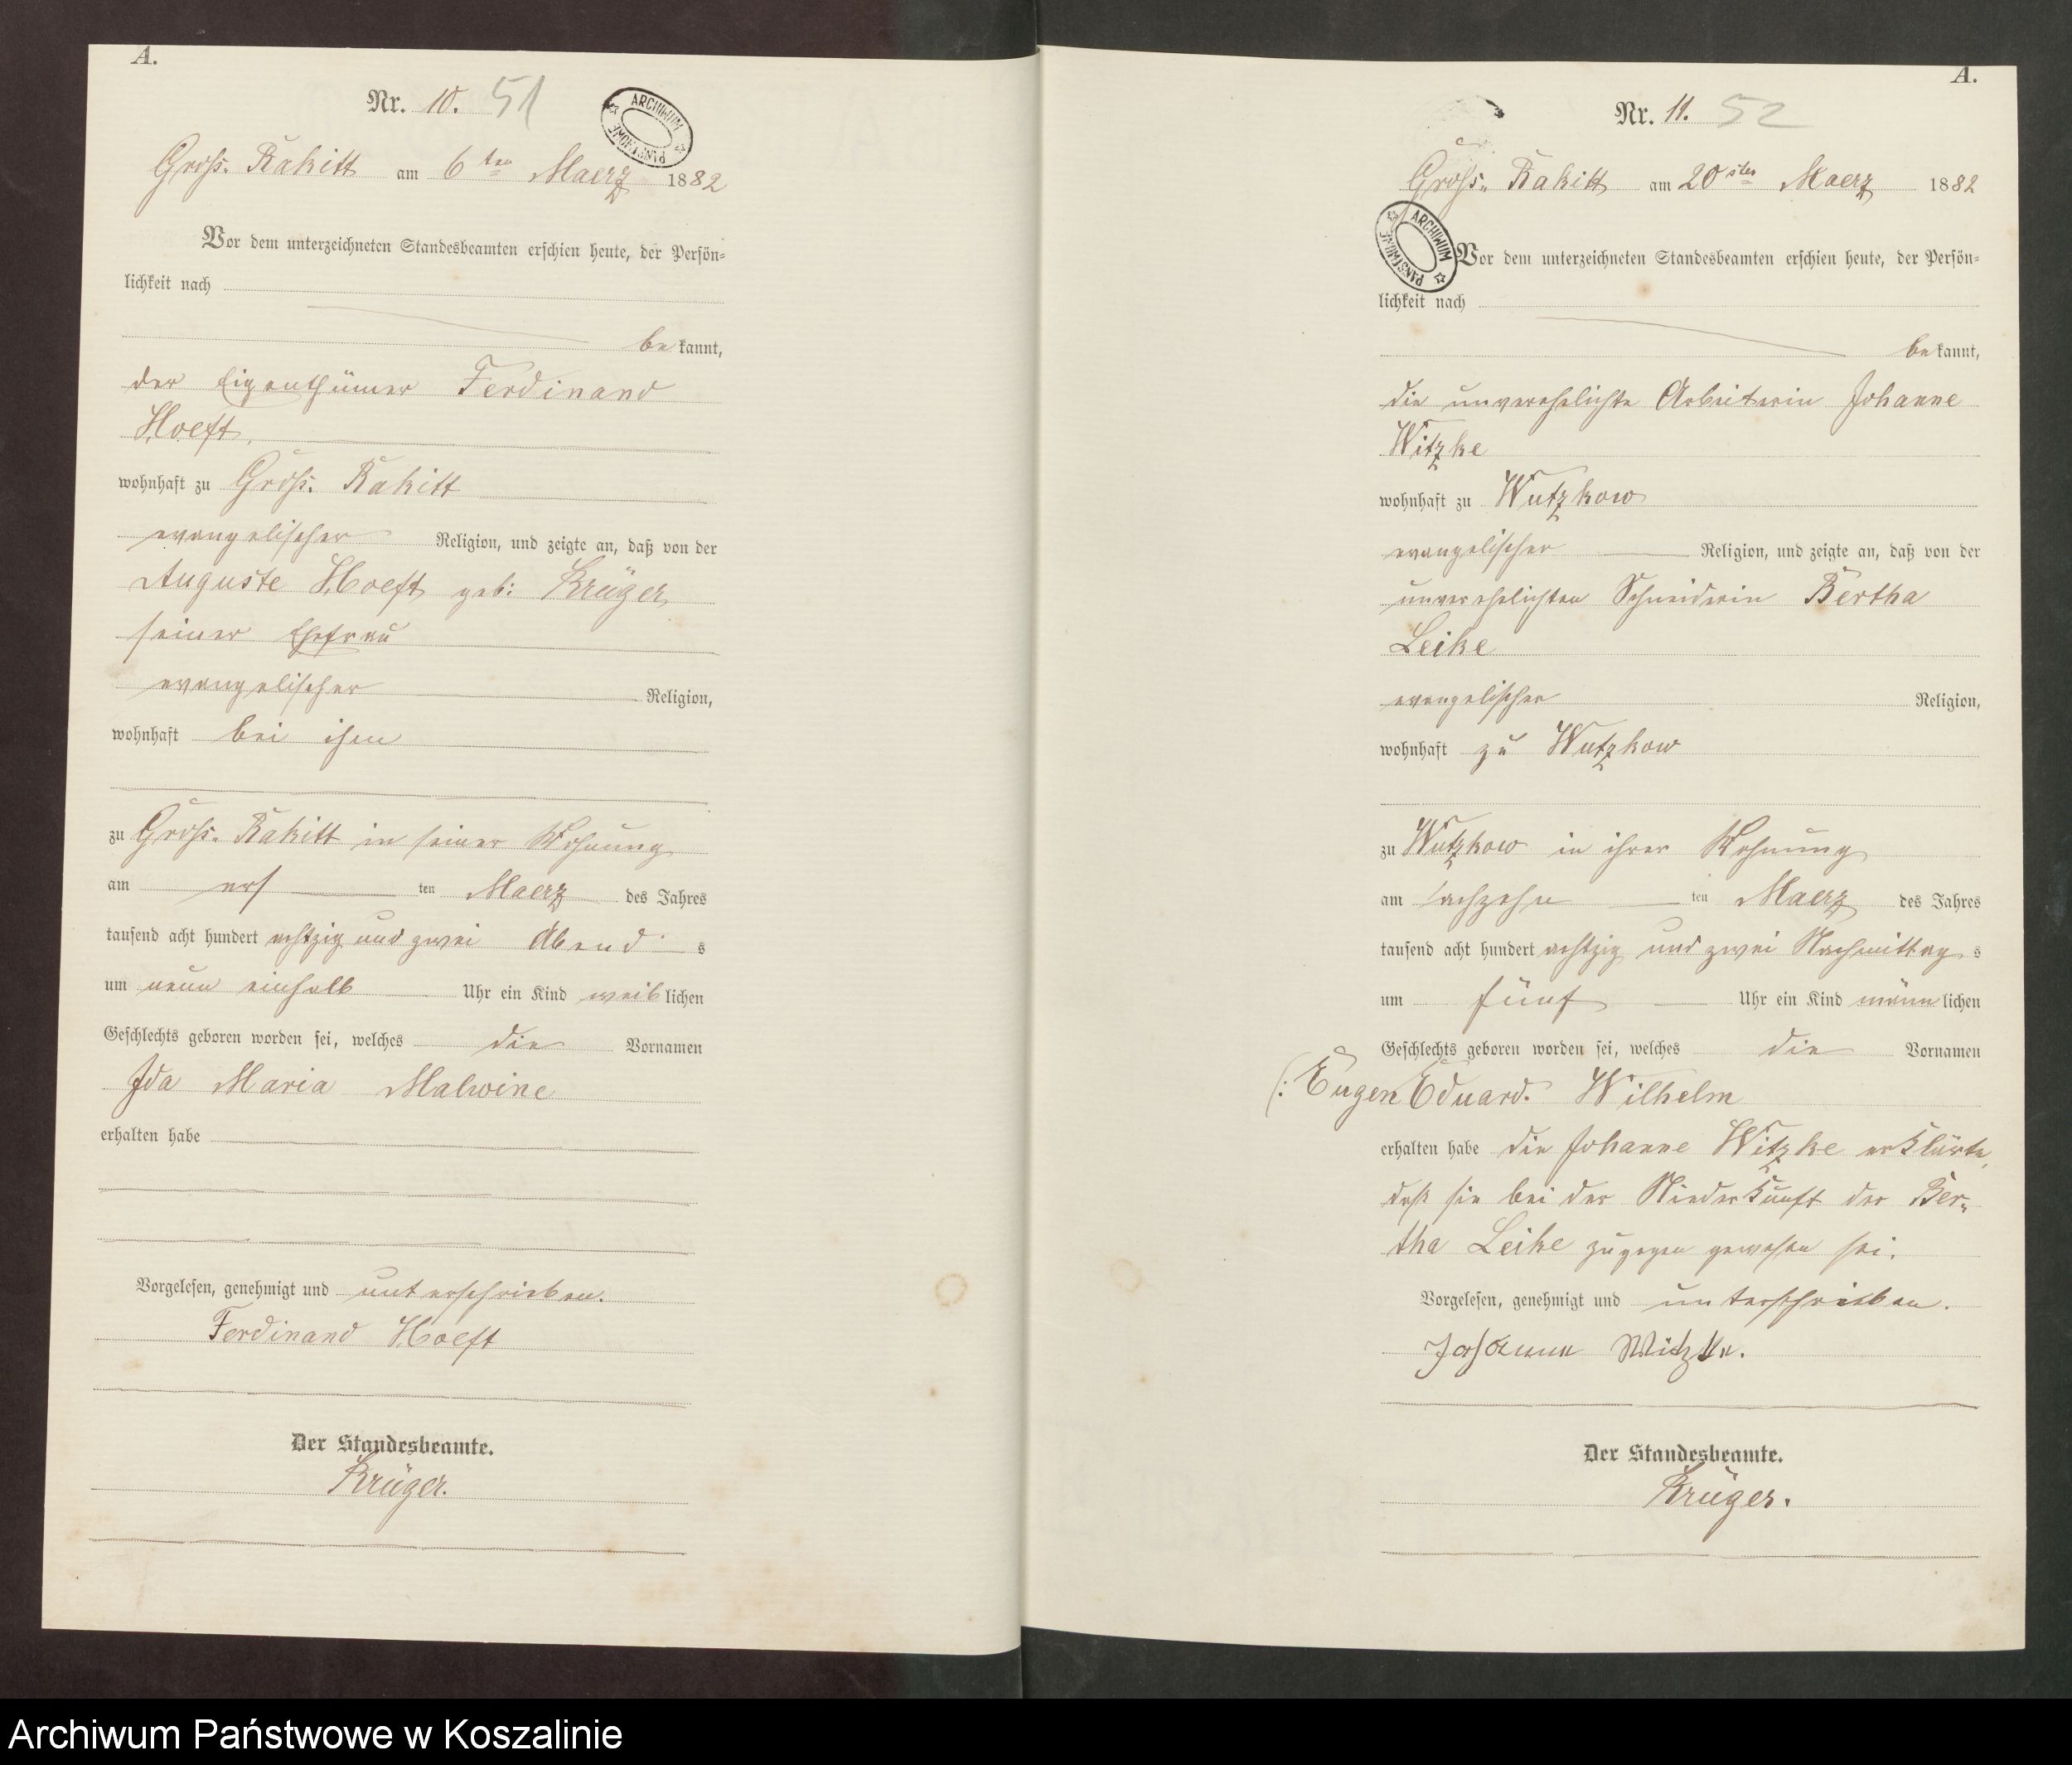 A.
Nr. 10. 51
ARCHIWUM PAŃSTWOWE
Gross. Rakitt am 6ten Maerz 1882
Vor dem unterzeichneten Standesbeamten erschien heute, der Persön-
lichkeit nach
bekannt,
der Eigenthümer Ferdinand
Hoeft,
wohnhaft zu Gross. Rakitt
evangelischer Religion, und zeigte an, daß von der
Auguste Hoeft geb: Krüger
seiner Ehefrau
evangelischer Religion,
wohnhaft bei ihm
zu Gross. Rakitt in seiner Wohnung
am ers ten Maerz des Jahres
tausend acht hundert achtzig und zwei Abend s
um neun einhalb Uhr ein Kind weiblichen
Geschlechts geboren worden sei, welches die Vornamen
Ida Maria Malwine
erhalten habe
Vorgelesen, genehmigt und unterschrieben.
Ferdinand Hoeft
Der Standesbeamte.
Krüger.
A.
Nr. 11. 52
Gross. Rakitt am 20sten Maerz 1882
ARCHIWUM PAŃSTWOWE
Vor dem unterzeichneten Standesbeamten erschien heute, der Persön-
lichkeit nach
bekannt,
die unverehelichte Arbeiterin Johanne
Witzke
wohnhaft zu Wutzkow
evangelischer Religion, und zeigte an, daß von der
unverehelichten Schneiderin Bertha
Leike
evangelischer Religion,
wohnhaft zu Wutzkow
zu Wutzkow in ihrer Wohnung
am ten Maerz des Jahres
tausend acht hundert achtzig und zwei Nachmittag s
um fünf Uhr ein Kind männlichen
Geschlechts geboren worden sei, welches die Vornamen
(: Eugen Eduard. Wilhelm
erhalten habe die Johanne Witzke erklärte,
daß sie bei der Niederkunft der Ber-
tha Leike zugegen gewesen sei.
Vorgelesen, genehmigt und unterschrieben.
Johanne Witzke.
Der Standesbeamte.
Krüger.
Archiwum Państwowe w Koszalinie